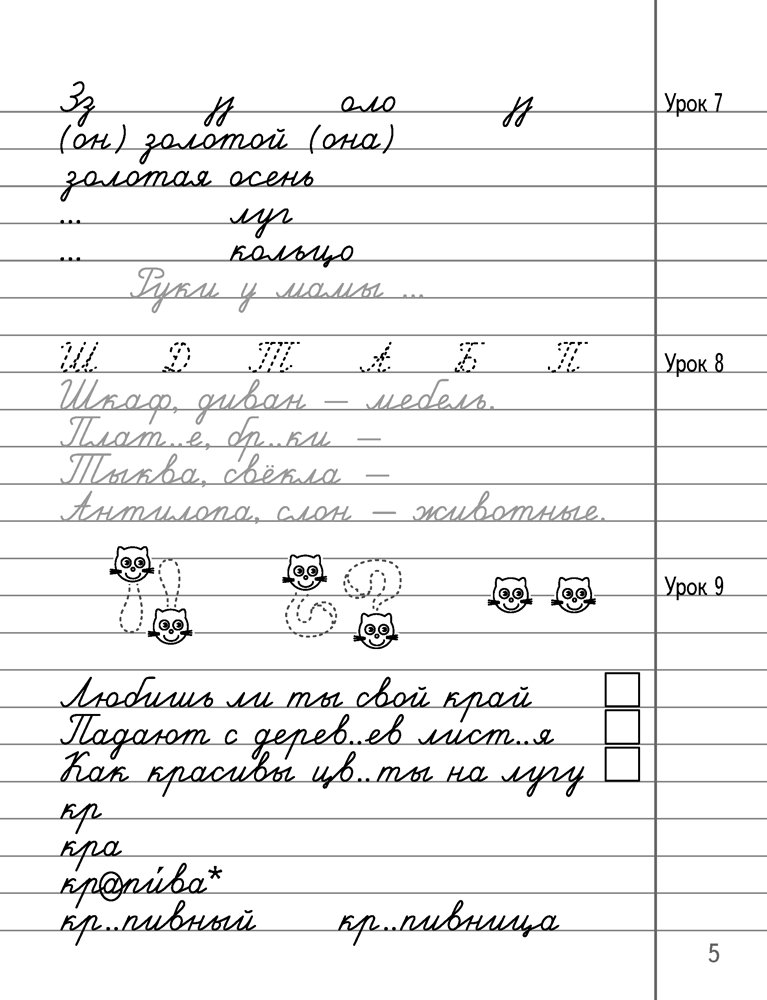 Зз       оло       Урок 7
(он) золотой (она)
золотая осень
... луг
... кольцо
Руки у мамы ...
Ш Д Т А Б П Урок 8
Шкаф, диван – мебель.
Плат..е, бр..ки –
Тыква, свёкла –
Антилопа, слон – животные.
Урок 9
Любишь ли ты свой край
Падают с дерев..ев лист..я
Как красивы цв..ты на лугу
кр
кра
крапи́ва*
кр..пивный кр..пивница
5